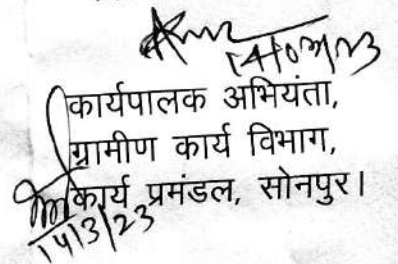 14/03/23
कार्यपालक अभियंता,
ग्रामीण कार्य विभाग,
कार्य प्रमंडल, सोनपुर।
14/3/23